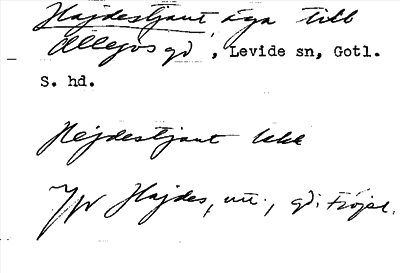 Hajdestjaut, äga till
Allegos gd, Levide sn, Gotl.
S. hd.
Hejdestjaut
Jfr Hajdes, gd i Fröjel.